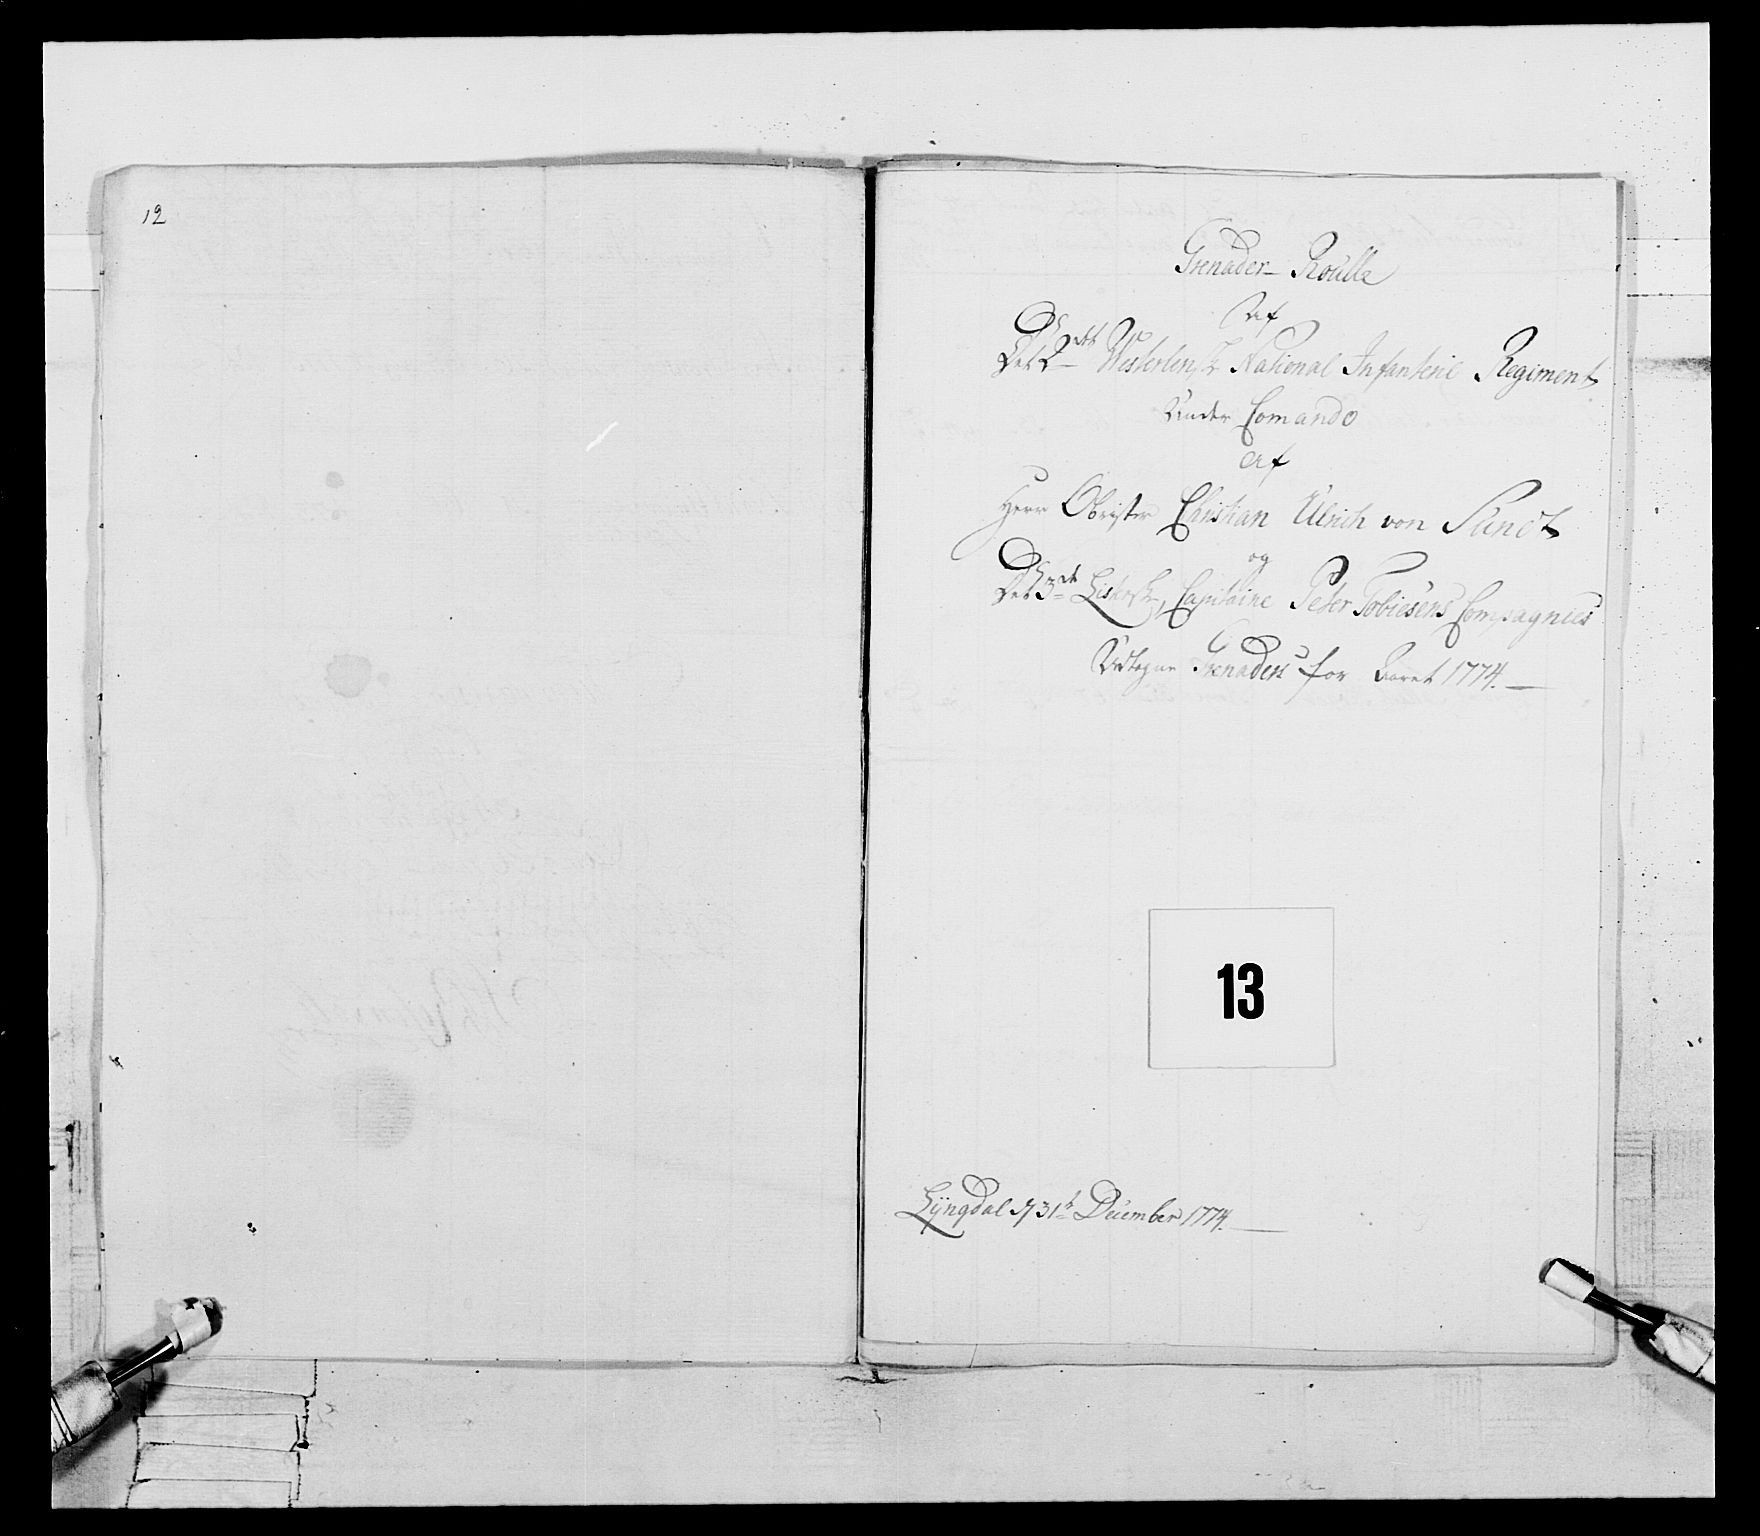 12
Grenader Roulle
Af
Det 2det Westerlensk National Infanterie Regiment
Under Comando
af
Herr Obrister Christian Ulrich von
og
Det 3de Listersk, Capitaine Peter Tobiesens Compagnies
Udtagne Grenaders for Aaret 1774.
13
Lÿngdal d 31t December 1774.